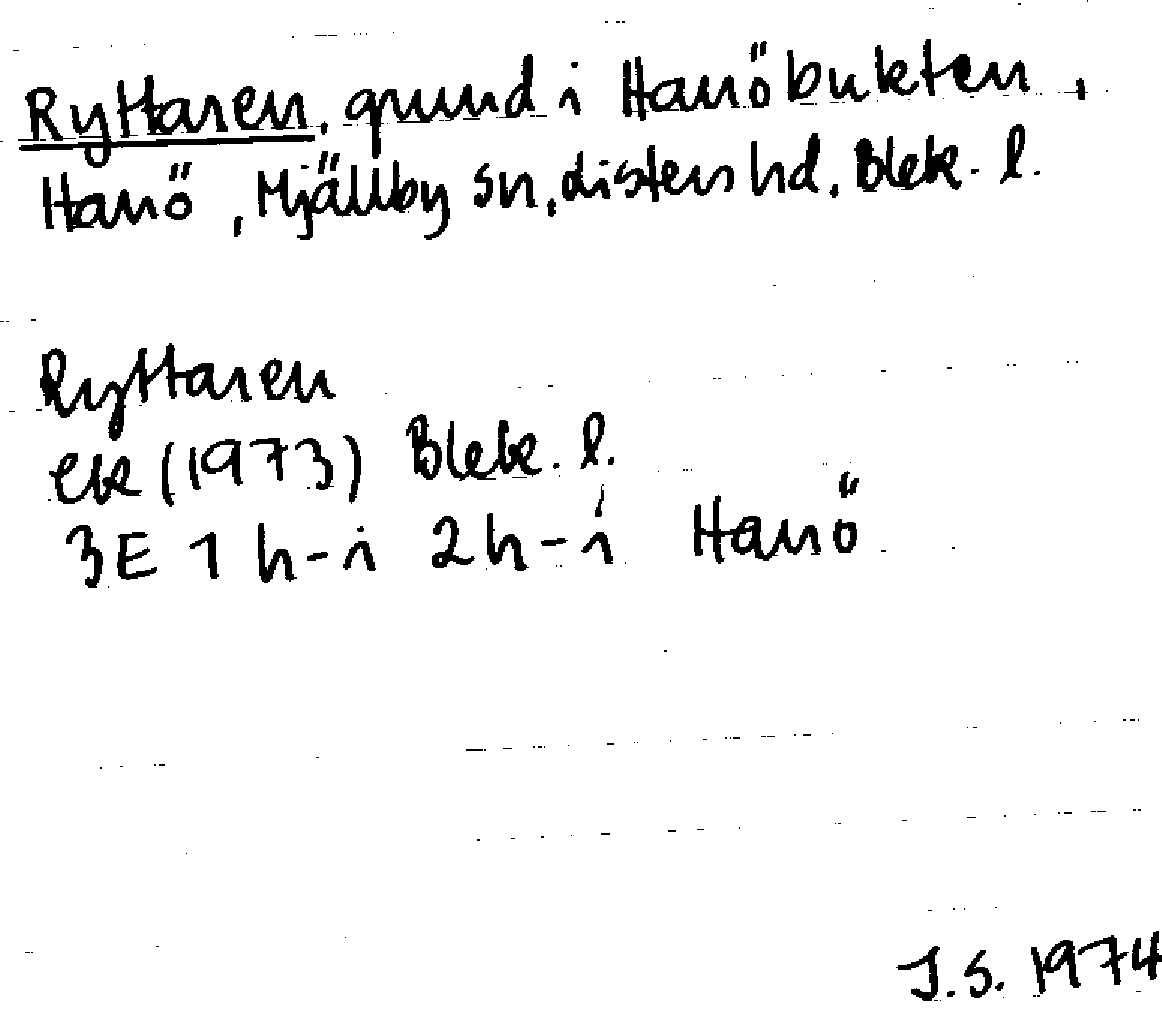 Ryttaren, grund i Hanöbukten,
Hanö, Mjällby sn, Listers hd. Blek. l.
Ryttaren
Ek (1973) Blek. l.
3E 1 h-i 2h-i Hanö
J.S. 1974